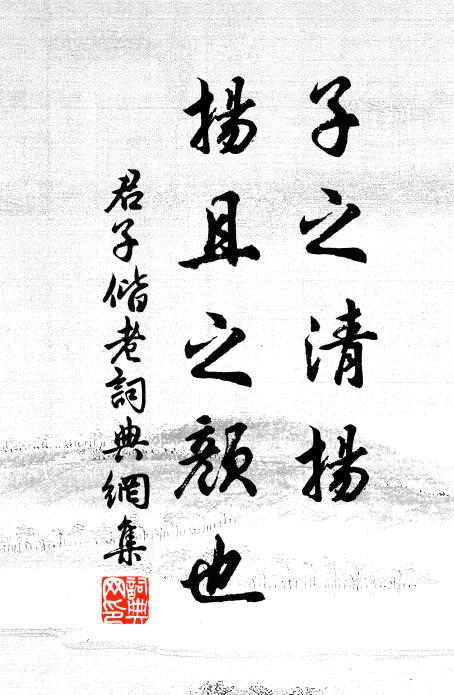 子之清揚
揚且之顏也
君子偕老詞典網集
詞典网印